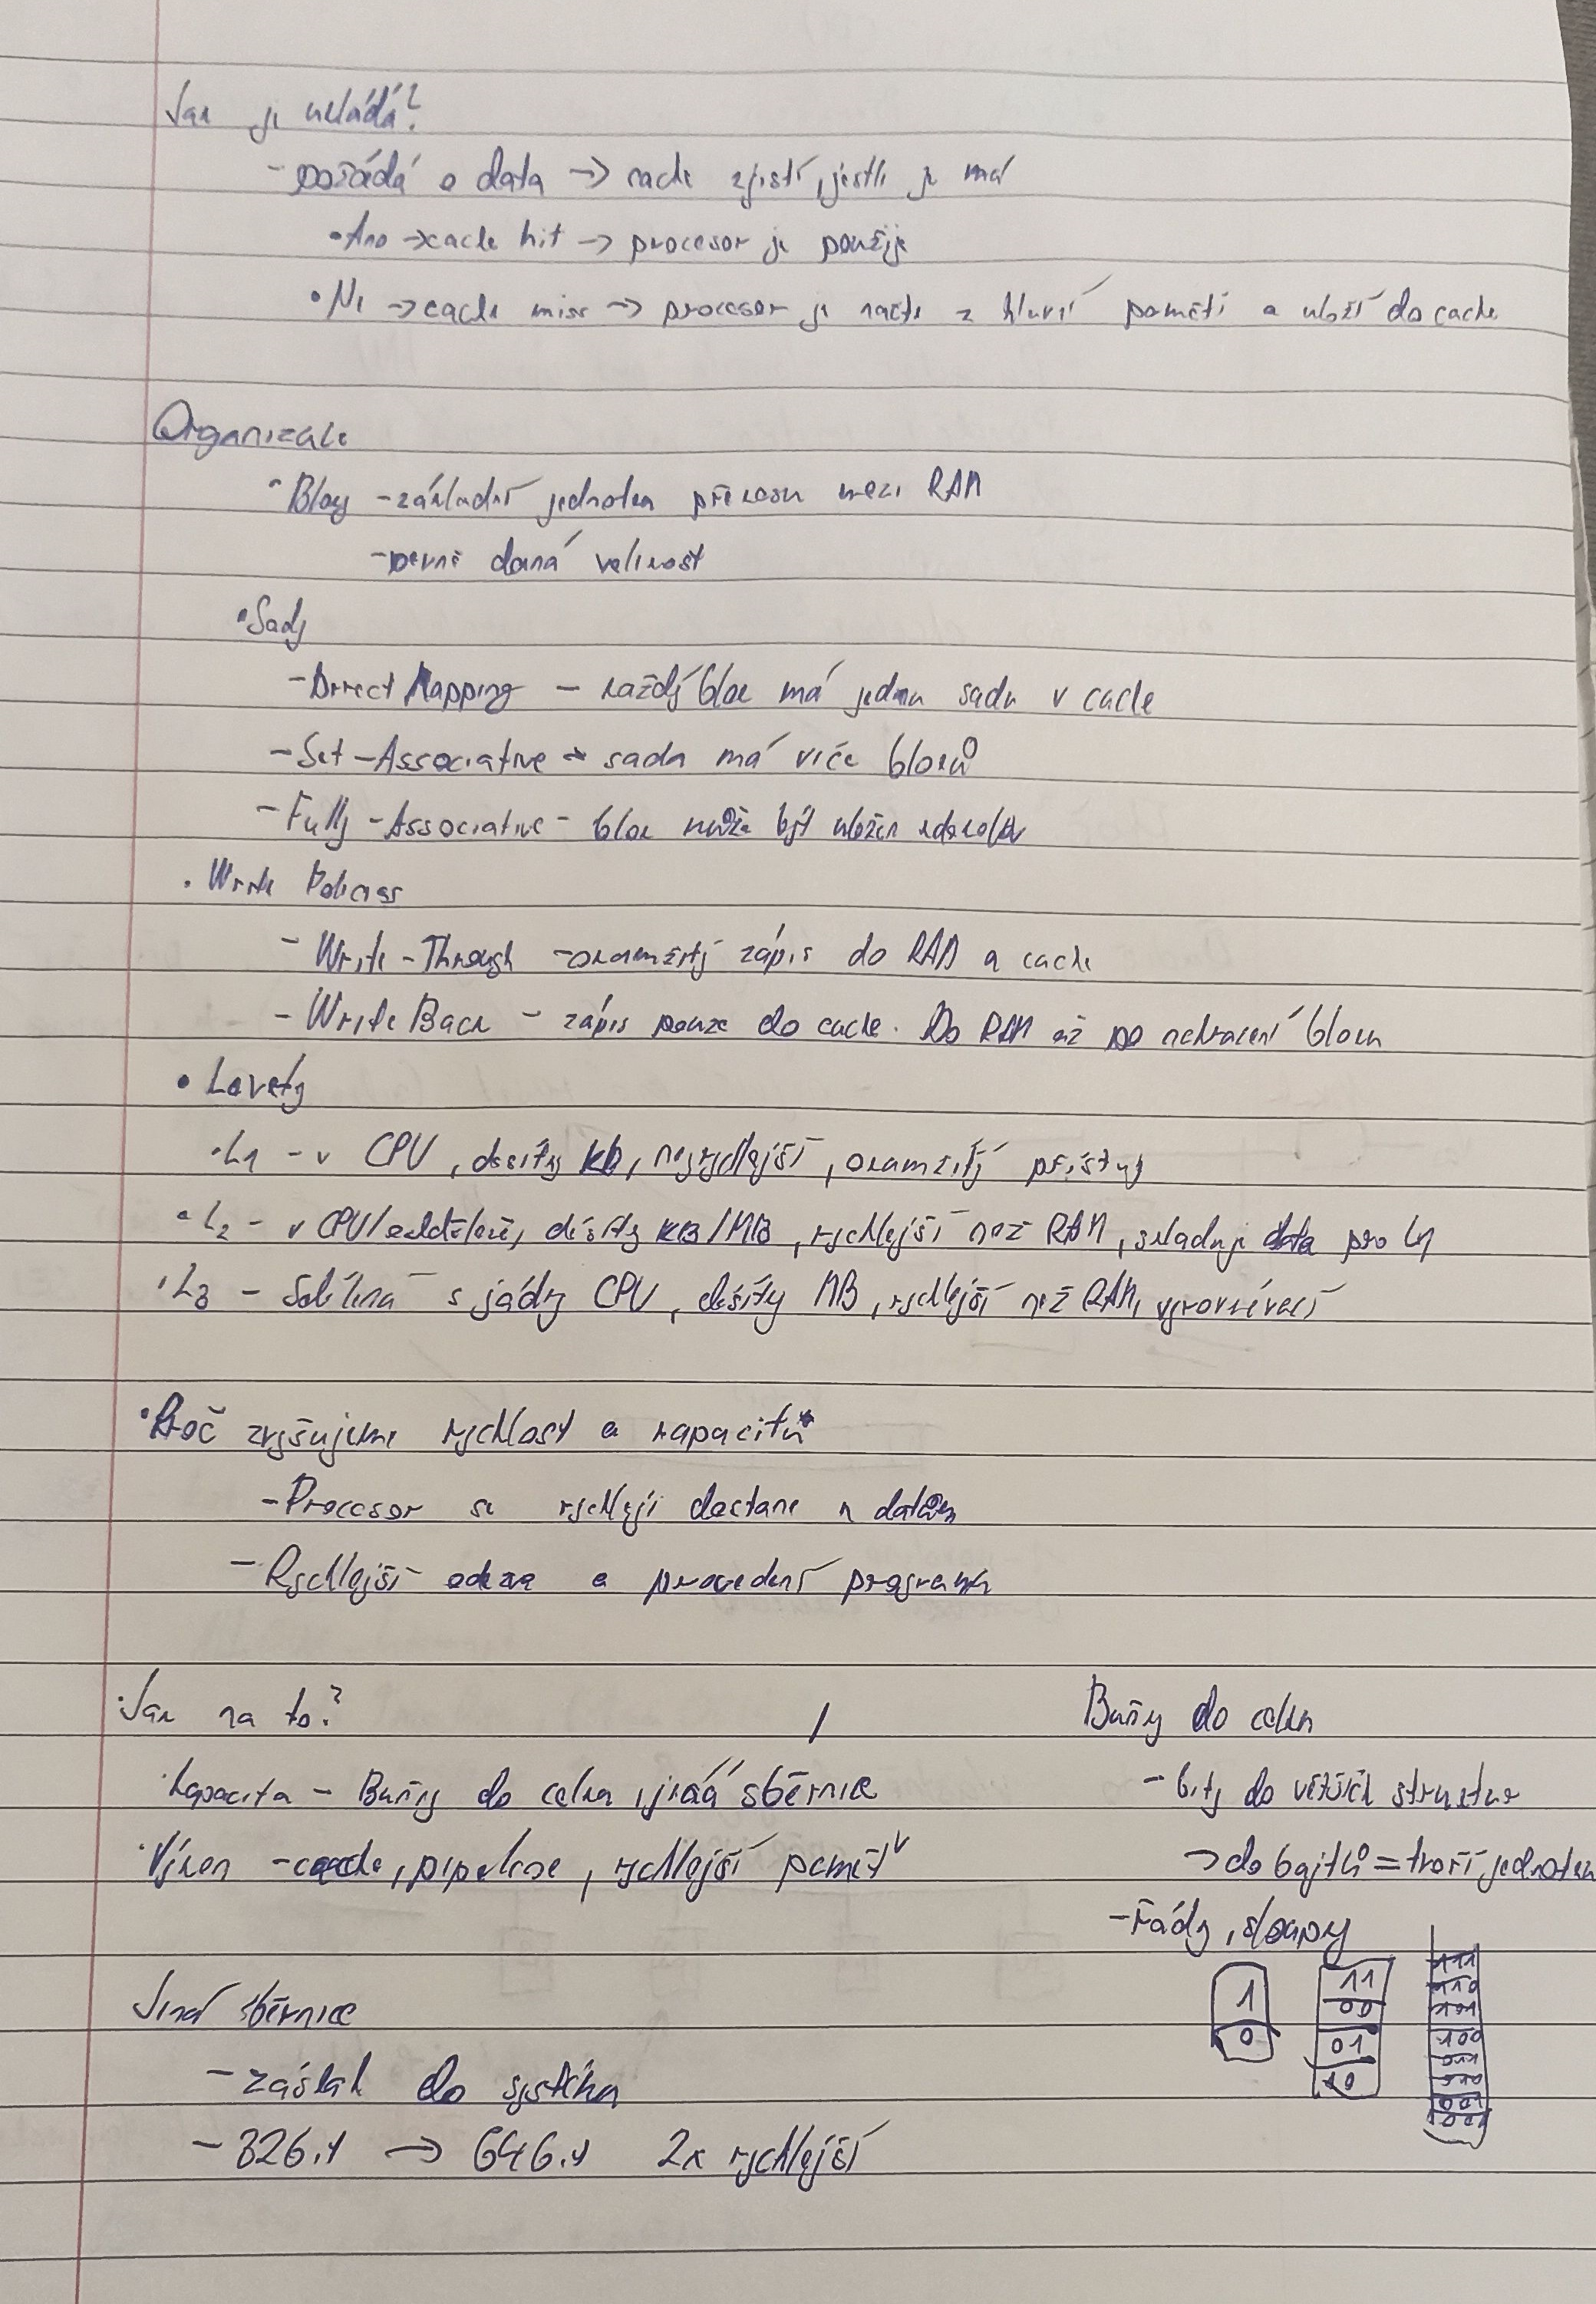 Jak je ukládá?
- požádá o data → cache zjistí, jestli je má
• Ano → cache hit → procesor je použije
• Ne → cache miss → procesor je načte z hlavní paměti a uloží do cache
Organizace
• Bloky - základní jednotka přenosu mezi RAM
- pevně daná velikost
• Sady
- Direct Mapping - každý blok má jednu sadu v cache
- Set-Associative - sada má více bloků
- Fully-Associative - blok může být uložen kdekoliv
• Write Policies
- Write-Through - okamžitý zápis do RAM a cache
- Write Back - zápis pouze do cache. Do RAM až po nahrazení bloku
• Levely
• L1 - v CPU, desítky kB, nejrychlejší, okamžitý přístup
• L2 - v CPU/odděleně, desítky KB/MB, rychlejší než RAM, skladuje data pro L1
• L3 - Sdílená s jádry CPU, desítky MB, rychlejší než RAM, vyrovnávací
• Proč zvyšujeme rychlost a kapacitu
- Procesor se rychleji dostane k datům
- Rychlejší odezva a provedení programu
• Jak na to?
• Kapacita - Buňky do celku, jiná sběrnice
• Výkon - cache, pipeline, rychlejší paměť
Jiná sběrnice
- zásah do systému
- 32bit → 64bit 2x rychlejší
Buňky do celku
- bity do větších struktur
→ do bajtů = tvoří jednotku
- řády, sloupy
1
0
11
00
01
10
111
110
101
100
011
010
001
000